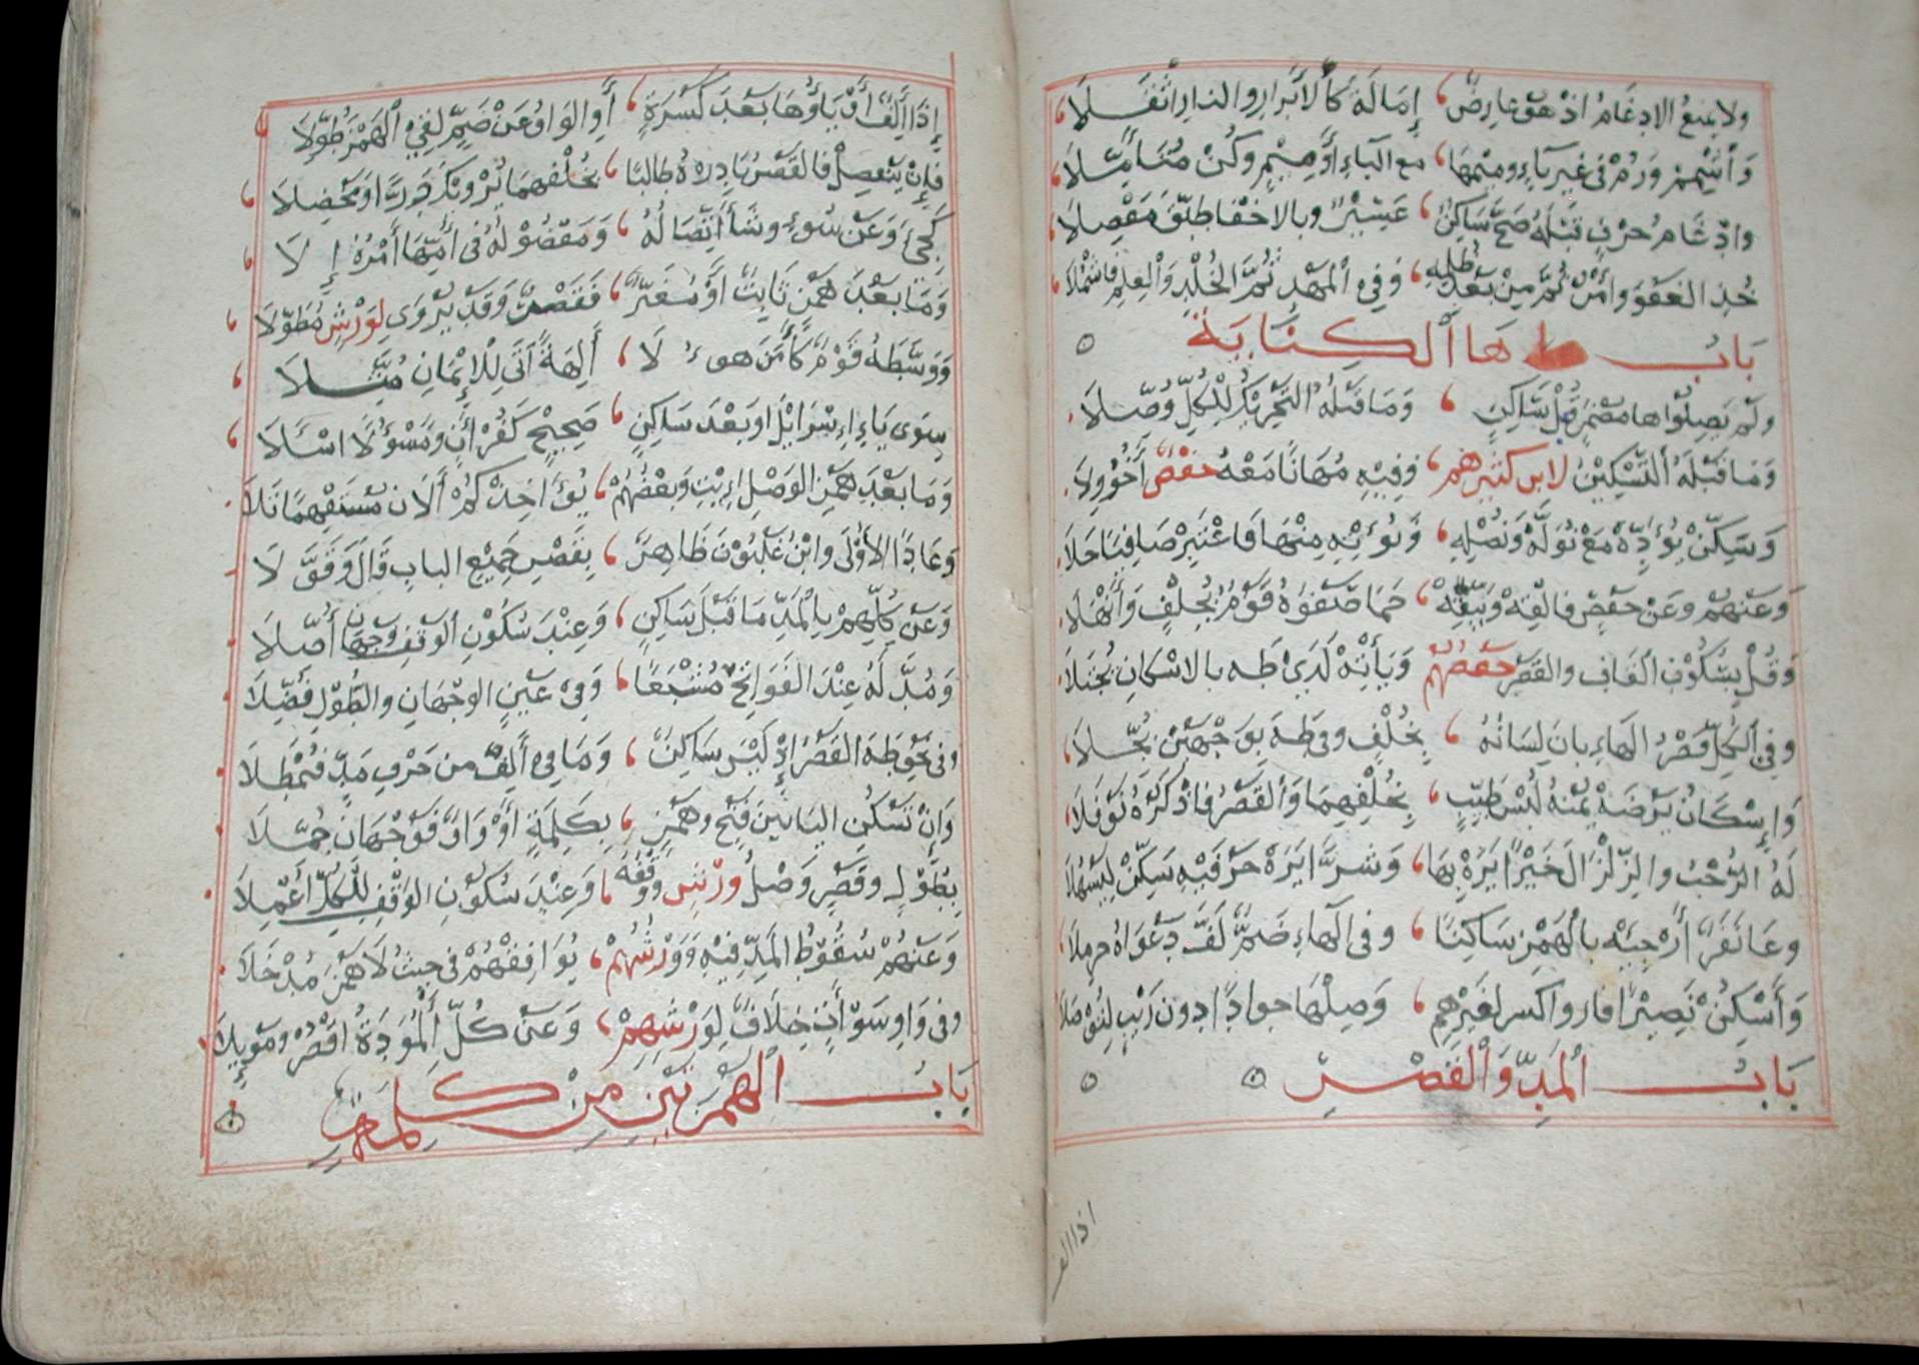 ولا يمنع الادغام اذ هو عارض ، إمالة كالابرار والنار اثقلا
وأشمم ورم في غير باء وميمها ، مع الباء أو ميم وكن متأملا
وادغام حرف قبله صح ساكن ، عسير وبالاخفا طبق مفصلا
خذ العفو وامر ثم من بعد ظلمه ، وفي المهد ثم الخلد والعلم فاشملا
باب ها الكناية
ولم يصلوا ها مضمر قبل ساكن ، وما قبله التحريك للكل وصلا
وما قبله التسكين لابن كثيرهم ، وفيه مهانا معه حفص أخو ولا
وسكن يؤده مع نوله ونصله ، ونؤته منها فاعتبر صافيا حلا
وعنهم وعن حفص فالقه ويتقه ، حما صفوه قوم بخلف وأنهلا
وقل بسكون القاف والقصر حفصهم ، ويأته لدى طه بالاسكان يجتلا
وفي الكل قصر الهاء بان لسانه ، بخلف وفي طه بوجهين بجلا
وإسكان يرضه يمنه لبس طيب ، بخلفهما والقصر فاذكره نوفلا
له الرحب والزلزال خيرا يره بها ، وشرا يره حرفيه سكن ليسهلا
وعا نفر أرجئه بالهمز ساكنا ، وفي الهاء ضم لف دعواه حرملا
وأسكن نصيرا فاز واكسر لغيرهم ، وصلها جوادا دون ريب لتوصلا
باب المد والقصر
اذا الف
إذا ألف أو ياؤها بعد كسرة ، أو الواو عن ضم لفي الهمز طولا
فإن ينفصل فالقصر بادره طالبا ، بخلفهما يرويك درا ومخضلا
كجئ وعن سوء وشاء اتصاله ، ومفصوله في أمها أمره إلا
وما بعد همز ثابت أو مغير ، فقصر وقد يروى لورش مطولا
ووسطه قوم كأمن هوء لا ، ألهة أتى للايمان مثلا
سوى ياء اسرائل او بعد ساكن ، صحيح كقرءان ومسؤلا اسئلا
وما بعد همز الوصل ايت وبعضهم ، يؤاخذكم ألان مستفهما تلا
وعادا الاولى وابن غلبون ظاهر ، بقصر جميع الباب قال وقولا
وعن كلهم بالمد ما قبل ساكن ، وعند سكون الوقف وجهان أصلا
ومد له عند الفواتح مشبعا ، وفي عين الوجهان والطول فضلا
وفي نحو طه القصر اذ ليس ساكن ، وما في الف من حرف مد فيمطلا
وإن تسكن اليا بين فتح وهمز ، بكلمة أو واو فوجهان جملا
بطول وقصر وصل ورش ووقفه ، وعند سكون الوقف للكل أعملا
وعنهم سقوط المد فيه وورشهم ، يوافقهم في حيث لا همز مدخلا
وفي واو سوآت خلاف لورشهم ، وعن كل الموءدة اقصر وموئلا
باب الهمزتين من كلمة